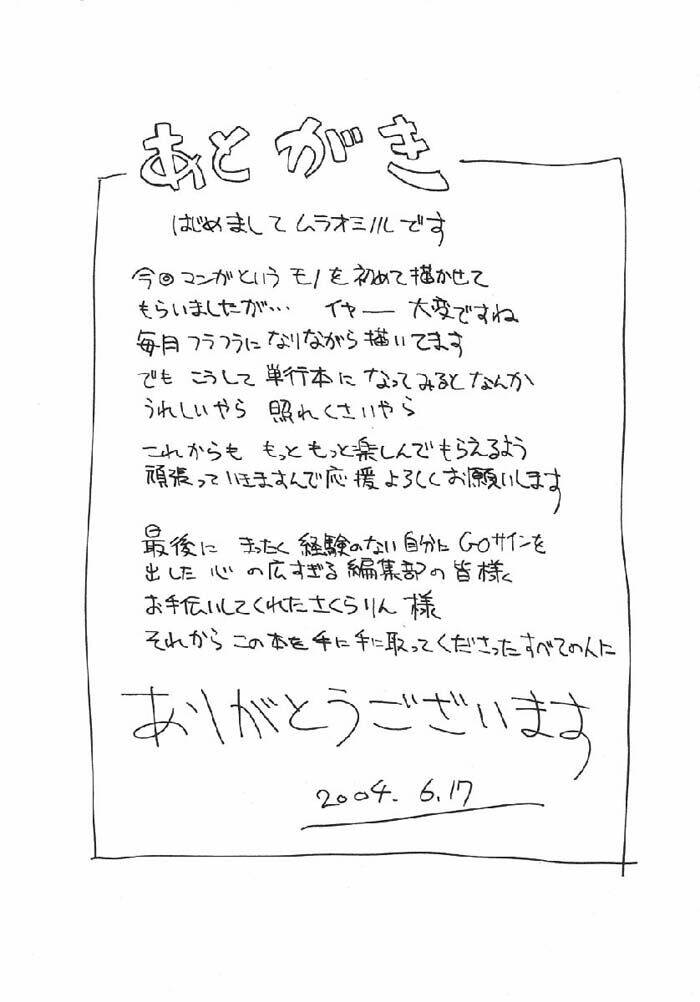 あとがき
はじめまして ムラオミノルです
今回 マンガという モノを初めて描かせて
もらいましたが… イヤー 大変ですね
毎月 フラフラに なりながら 描いてます
でも こうして 単行本に なってみると なんか
うれしいやら 照れくさいやら
これからも もっと もっと楽しんで もらえるよう
頑張っていきますんで 応援 よろしく お願いします
最後に まったく 経験のない 自分に GOサインを
出した 心 の広すぎる 編集部の皆様
お手伝いしてくれた さくらりん 様
それから この本を 手に 手に取ってくださった すべての人に
ありがとうございます
2004. 6.17